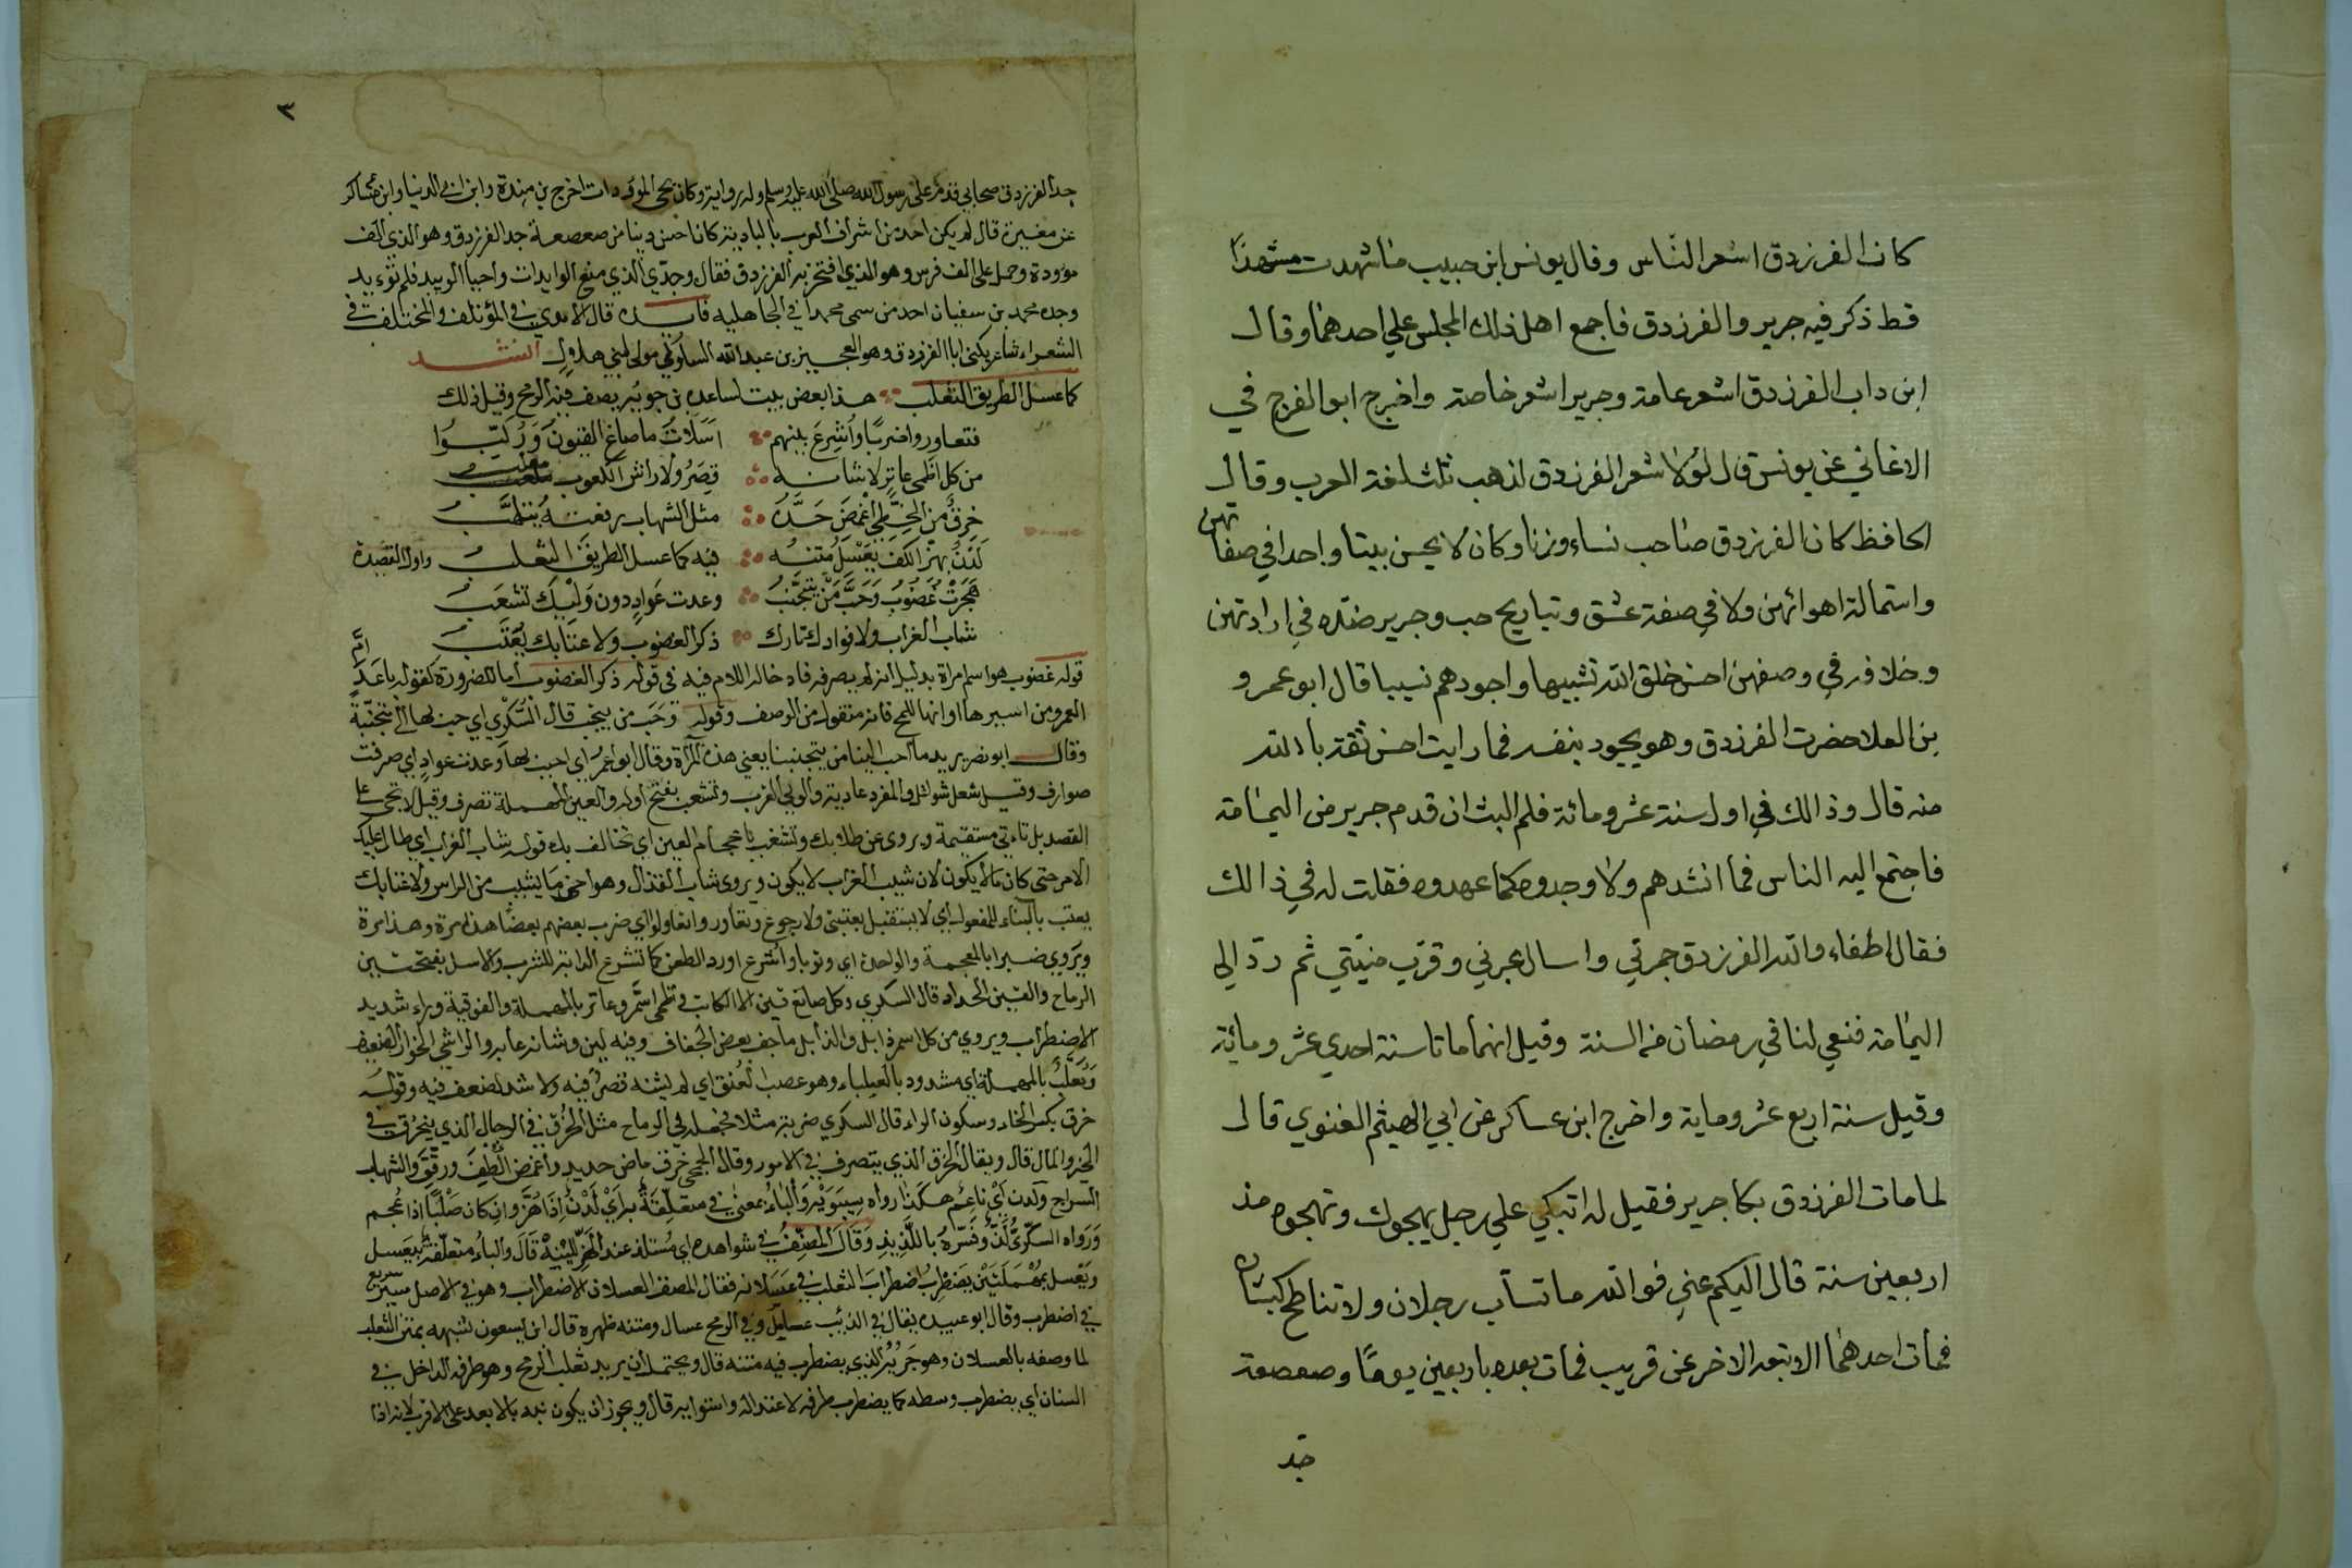 كان الفرزدق اشعر الناس وقال يونس ابن حبيب ما شهدت مشهدا
قط ذكر فيه جرير والفرزدق فاجمع اهل ذلك المجلس علي احدهما وقال
ابن داب الفرزدق اشعر عامة وجرير اشعر خاصة واخرج ابو الفرج في
الاغاني عن يونس قال لولا شعر الفرزدق لذهب ثلث لغة العرب وقال
الحافظ كان الفرزدق صاحب نساء وزنا وكان لا يحسن بيتا واحدا في صفاتهن
واستمالة اهوائهن ولا في صفة عشق وتباريح حب وجرير ضده في ارادتهن
وخلافه في وصفهن احسن خلق الله تشبيبا واجودهم نسيبا قال ابو عمرو
بن العلا حضرت الفرزدق وهو يجود بنفسه فما رايت احسن ثقة بالله
منه قال وذالك في اول سنة عشر ومائة فلم البث ان قدم جرير من اليمامة
فاجتمع اليه الناس فما انشدهم ولا وجدوه كما عهدوه فقلت له في ذالك
فقال اطفاء والله الفرزدق جمرتي واسال عبرتي وقرب منيتي ثم رد الي
اليمامة فنعي لنا في رمضان من السنة وقيل انهما ماتا سنة احدي عشر ومائة
وقيل سنة اربع عشر وماية واخرج ابن عساكر عن ابي الهيثم الغنوي قال
لما مات الفرزدق بكا جرير فقيل له اتبكي علي رجل يهجوك وتهجوه منذ
اربعين سنة قال اليكم عني فوالله ما تساب رجلان ولا تناطح كبشان
فمات احدهما الا تبعه الاخر عن قريب فمات بعده باربعين يوما وصعصعة
جد
٣
جد الفرزدق صحابي قدم على رسول الله صلى الله عليه وسلم وله رواية وكان يحيى الموؤدات اخرج بن مندة وابن ابي الدنيا وابن عساكر
عن مغيرة قال لم يكن احد من اشراف العرب بالبادية كان احسن دينا من صعصعة جد الفرزدق وهو الذي الف
موؤدة وحمل على الف فرس وهو الذي افتخر به الفرزدق فقال وجدي الذي منع الوايدات واحيا الوييد فلم توءيد
وجده محمد بن سفيان احد من سمى محمدا في الجاهليه فايده قال الامدي في المؤتلف والمختلف في
الشعراء شاعر يكنى ابا الفرزدق وهو العجير بن عبد الله السلولي مولى لبني هلال انشد
كما عسل الطريق الثعلب هذا بعض بيت لساعده بن جويه يصف فيه الرمح وقبل ذلك
فتعاوروا ضربا واشرع بينهم اسلات ما صاغ القيون وركبوا
من كل اظمى عاتر لا شانه قصر ولا راش الكعوب معلب
خرق من الخطي اغمض حده مثل الشهاب رفعته يتلهب
لدن بهز الكف يعسل متنه فيه كما عسل الطريق الثعلب واول القصيدة
هجرت غضوب وحب من يتجنب وعدت عواد دون وليك تشعب
شاب الغراب ولا فوادك تارك ذكر الغضوب ولا عتابك يعتب
قوله غضوب هو اسم امراة بدليل انه لم يصرفه فادخاله اللام فيه في قوله ذكر الغضوب اما للضرورة كقوله باعد ام
العمرو من اسيرها او انها للمح فانه منقول من الوصف وقوله وحب من يتجنب قال السكري اي حب بها الي متجنبة
وقال ابو نصر يريد ما احب الينا من يتجنبنا يعني هذه المراة وقال ابو عمرو اي احبب بها وعدت عواد اي صرفت
صوارف وقيل شغل شواغل والمفرد عادية والولي القرب وتشعب بفتح اوله والعين المهملة تصرف وقيل لا تجي على
القصد بل تاءتي مستقيمة ويروى عن طلابك وتشغب باعجام الغين اي تخالف بك قوله شاب الغراب اي طال عليك
الامر حتى كان ما لا يكون لان شيب الغراب لا يكون ويروى شاب القذال وهو اخر ما يشيب من الراس ولا عتابك
يعتب بالبناء للمفعول اي لا يستقبل بعتبى ولا رجوع وتعاوروا تعاولوا اي ضرب بعضهم بعضا هذا مرة وهذا مرة
ويروى ضبرا بالمعجمة والواحدة اي وثوبا واشرع اورد الطعن كما تشرع الدابة للشرب والاسل بفتحتين
الرماح والقين الحداد قال السكري وكل صانع قين الا الكاتب واظمى اسمر وعاتر بالمهملة والفوقية وراء شديد
الاضطراب ويروي من كل اسمر ذابل والذابل ما جف بعض الجفاف وفيه لين وشانه عابه والراشي الخوار الضعيف
ومعلب بالمهملة اي مشدود بالعلباء وهو عصب العنق اي لم يشنه قصر فيه ولا شد لضعف فيه وقوله
خرق بكسر الخاء وسكون الراء قال السكري ضربه مثلا فجعله في الرماح مثل الخرق في الرجال الذي يتخرق في
الخير والمال قال ويقال الخرق الذي يتصرف في الامور وقال الجمحي خرق ماض حديد واغمض الطف ورقق والشهاب
السراج ولدن اي ناعم هكذا رواه سيبويه والباء بمعنى في متعلقة به اي لدن اذا هز وان كان صلبا اذا عجم
ورواه السكري لذ وفسره باللذيذ وقال المصنف في شواهده اي مستلذ عند الهز للينه قال والباء متعلقة بيعسل
ويعسل بمهملتين يضطرب اضطراب الثعلب في عسلانه فقال المصنف العسلان الاضطراب وهو في الاصل سير سريع
في اضطرب وقال ابو عبيده يقال في الذئب عسايل وفي الرمح عسال ومتنه ظهره قال ابن يسعون شبهه بمتن الثعلب
لما وصفه بالعسلان وهو جريه الذي يضطرب فيه متنه قال ويحتمل ان يريد ثعلب الرمح وهو طرفه الداخل في
السنان اي يضطرب وسطه كما يضطرب طرفه لاعتداله واستوايه قال ويجوز ان يكون نبه بالابعد على الاقرب لانه اذا